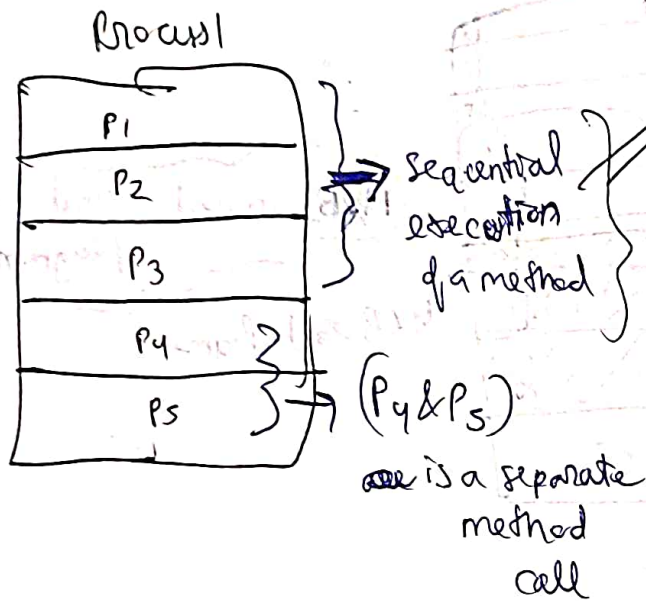 Process1
P1
P2
P3
P4
P5
sequential
execution
of a method
(P4 & P5)
is a separate
method
call